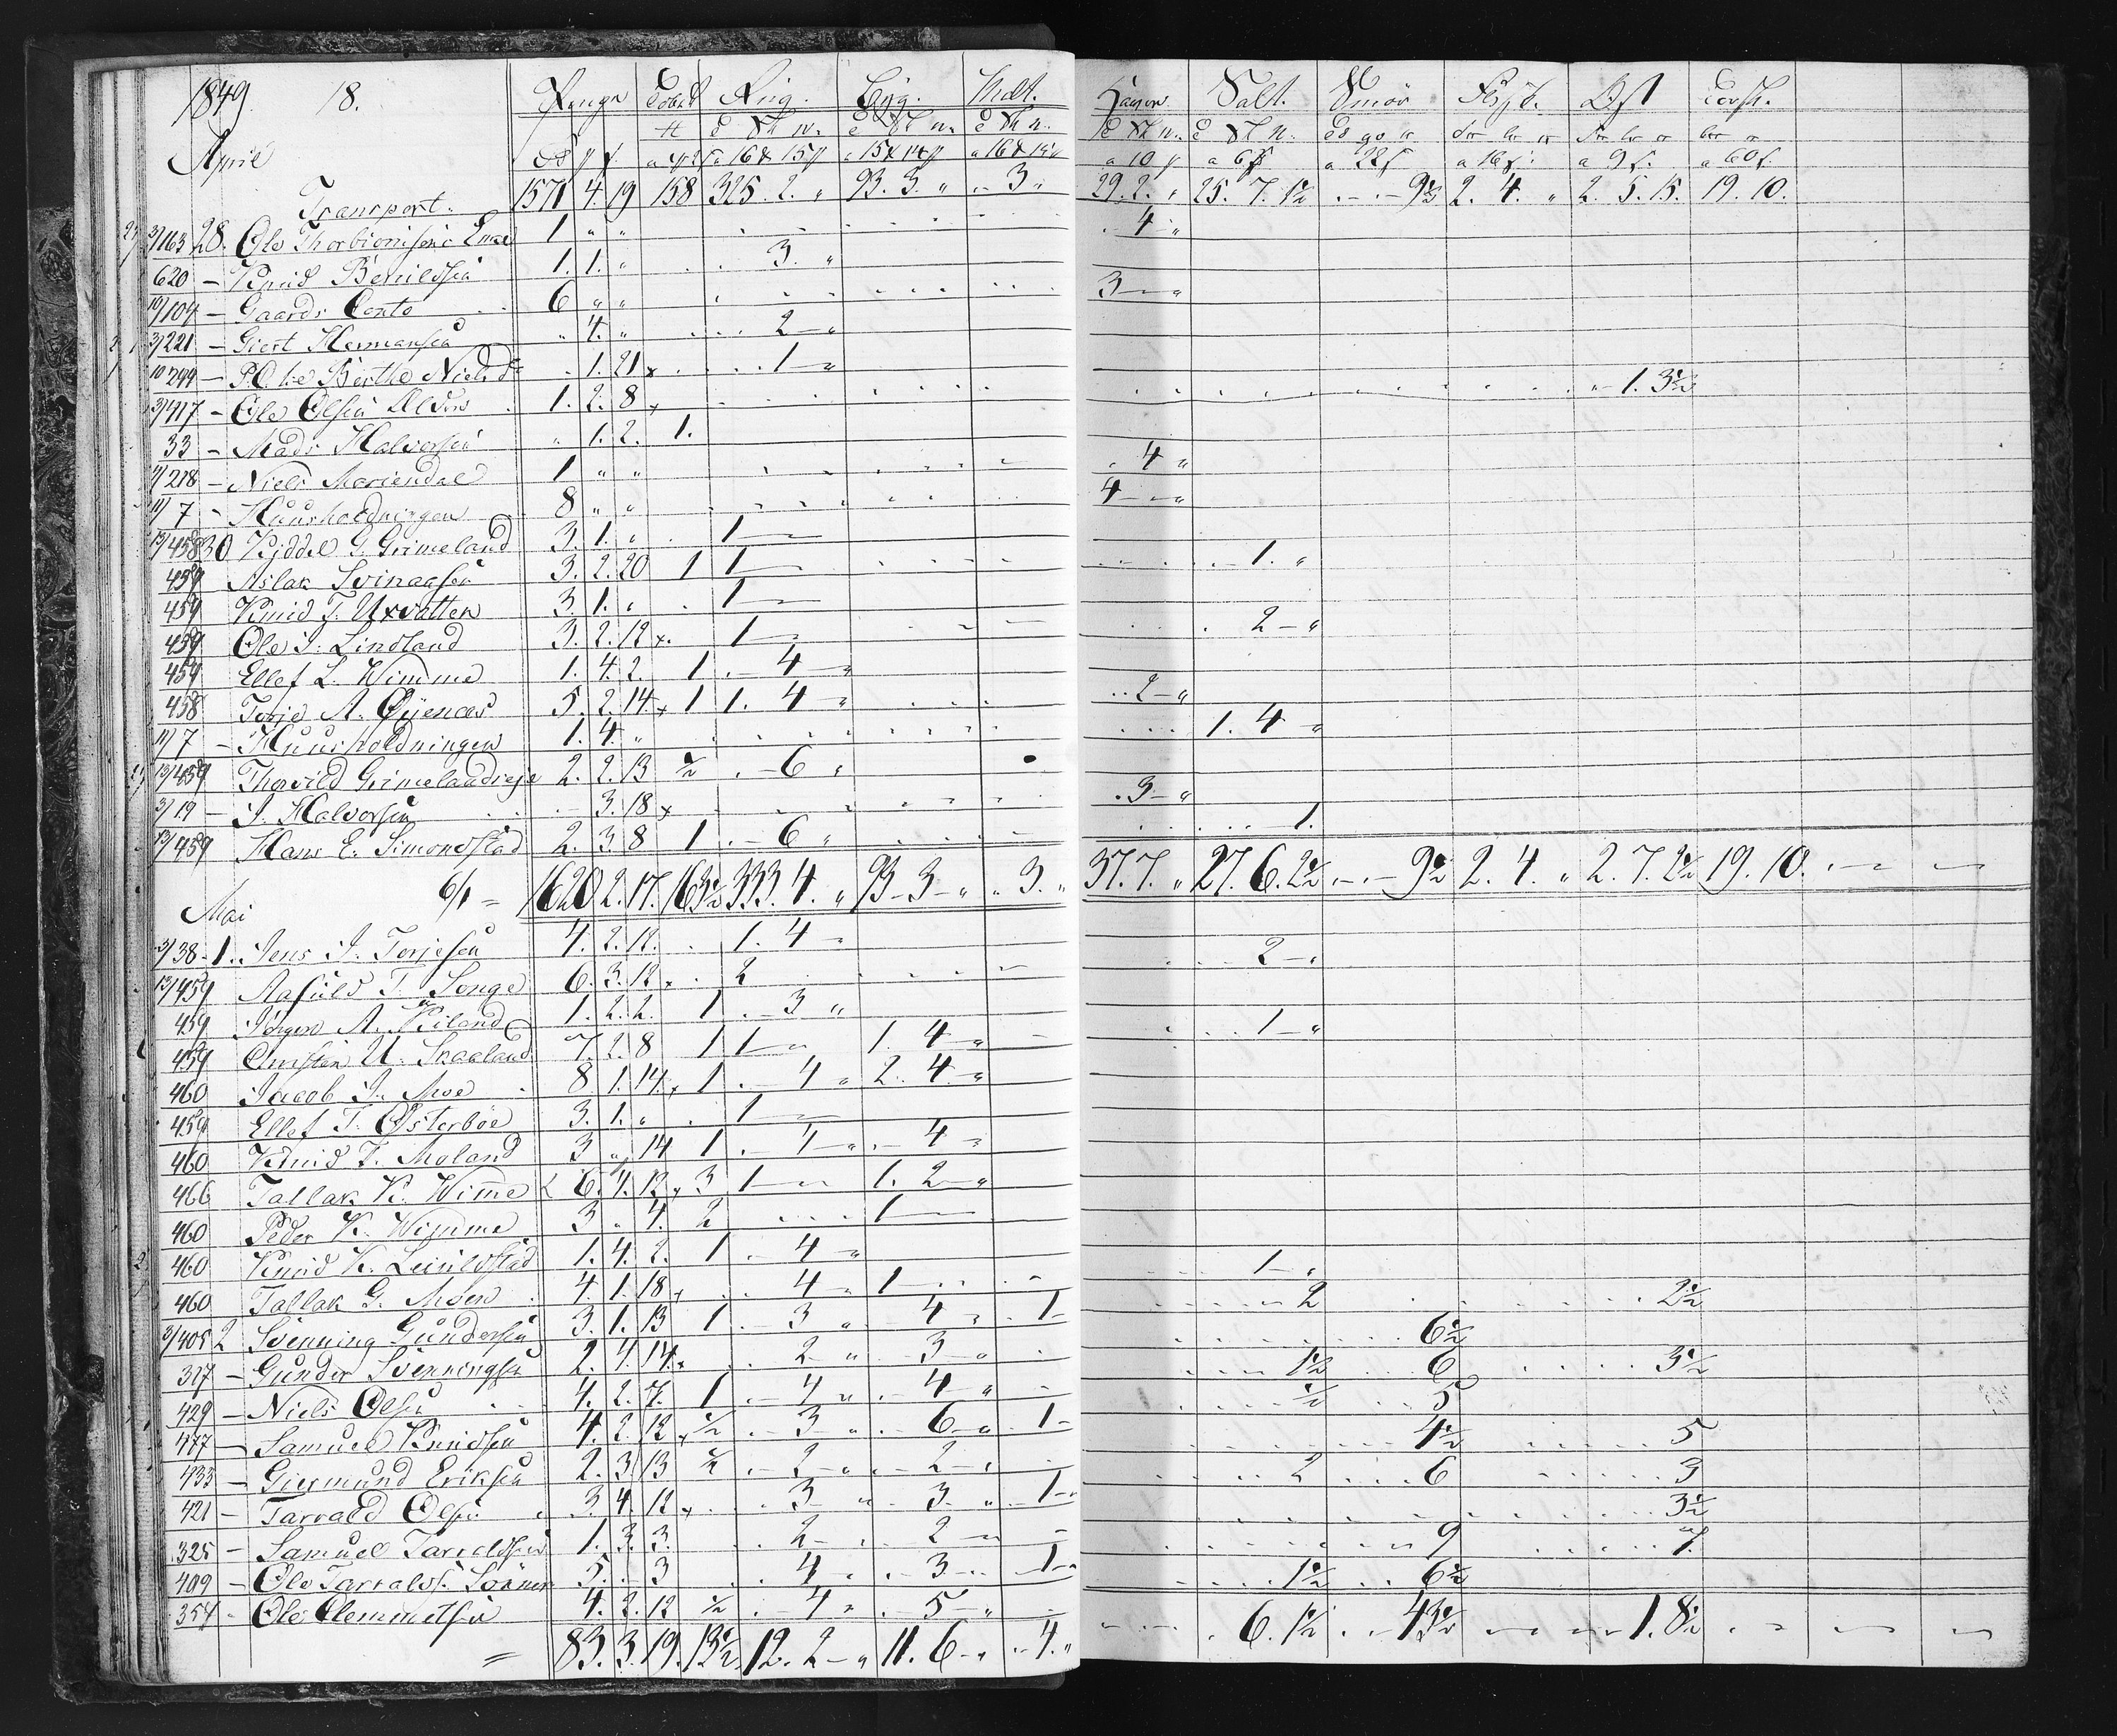 1849 18. Penge Tobak Rug. Byg. Malt. Havre Salt. Smör Flesk. Ost Torsk.
April
a 10 ß a 6 ß a 22 ß a 16 ß a 9 ß. a 60 ß.
Transport. 1571 4. 19 158 325. 2. „ 93. 3. „ „ 3 „ 29. 2. „ 25. 7. 1½ „ - 9½ 2. 4. „ 2. 5. 15. 19. 10.
3/163 28. Ole Thorbiörnsens Enke 1 „ „ 4 „
620 - Knud Bernildsen 1. 1. „ 3. „
10/104 - Gaards Conto 6 „ „ 3 - „
3/221 - Giert Hermansen „ 4. „ 2 - „
10/244 - Birthe Niels Dr „ 1. 21 x 1 - „
3/417 - Ole Olsen 1. 2. 8 x „ - 1. 3½
33 - Mads Halvorsen „ 1. 2. 1.
4/218 - Niels Mariendal 1 „ „ 4 „
11/7 - Huusholdningen 8 „ „ 4 - „
13/458 30 Kiddel G. Grimeland 3. 1. „ 1 -
459 Aslak Svinaasen 3. 2. 20 1 1 - 1. „
459 Knud T. Uxvatten 3. 1. „ 1 -
459 Ole J. Lindland 3. 2. 12 x. 1 - 2 - „
459 Ellef L. Wimme 1. 4. 2. 1 4 - „
458 Torje A. Öÿenæs 5. 2. 14. x 1 1. 4 „ 2 - „
11/7 - Huusholdningen 1. 4. „ 1. 4 „
13/459 Thorvild Grimelandseje 2. 2. 13 ½ 6 „
3/19 - J. Halvorsen 3. 18 x 3 - „
13/459 Hans E. Simonsstad 2. 3 8 1 6 „ 1.
6/1 = 1620 2. 17. 163½ 333. 4. „ 93 - 3 - „ „ 3. „ 37. 7. „ 27. 6. 2½ - 9½ 2. 4. „ 2. 7. 2½ 19. 10.
Mai
3/38 - 1. Jens J. Torjesen 4. 2. 12. 1. 4 -
13/459 Aasuld T. Songe 6. 3. 12 x 2 2 - „
459 Jörgen A. Kiland 1. 2. 2. 1 3 „
459 U. Snaaland 7. 2. 8 1 1 - „ 1. 4 - „ 1 - „
460 Jacob J. Moe 8 1. 14. x 1 4 „ 2. 4. - „
459 Ellef T. Österböe 3. 1. „ 1 -
460 Knud T. Moland 3 „ 14 1 4 - „ 4 „
460 Tallak K. Wim̄e 6. 4. 12 x 3 1 - „ 1. 2 - „
460 Peder K. Wimme 3 „ 4. 2 1 -
460 Knud K. 1. 4. 2. 1 4 - „
460 Tallak G. Moen 4. 1. 18 x 4 „ 1 - 1 - „
3/405 2 Svenning Gundersen 3. 1. 13 1 3 „ 4 „ 1 - 2 2½
327 - Gunder Svenningsen 2. 4. 14. x 2 „ 3 - „ 6½
429 - Niels Olsen 4. 2. 7. 1 4 „ 4 „ 1½ 6 3½
477 - Samuel Knudsen 4. 2. 12 x ½ 3 „ 6 - „ 1 - ½ 5
433 - Giermund Eriksen 2. 3 13 ½ 2 - „ 2 - „ 4½ 5
421 - Tarrald Olsen 3. 4. 12 x 3 „ 3. „ 1 - „ 2 6 3
325 - Samuel Tarraldsen 1. 3. 3. 2 - „ 2 - „ 3½
409 - Ole Tarralds. Sönner 5. - 3 4 - 3 - „ 1 - „ 9 7.
354 - Ole Clemmetsen 4. 2. 12 ½ 4 „ 5 - „ 1½ 6½
= 83. 3. 19. 13½ 12. 2 - „ 11. 6 - „ „ 4. „ 6. 1½ 43½ 1. 8½